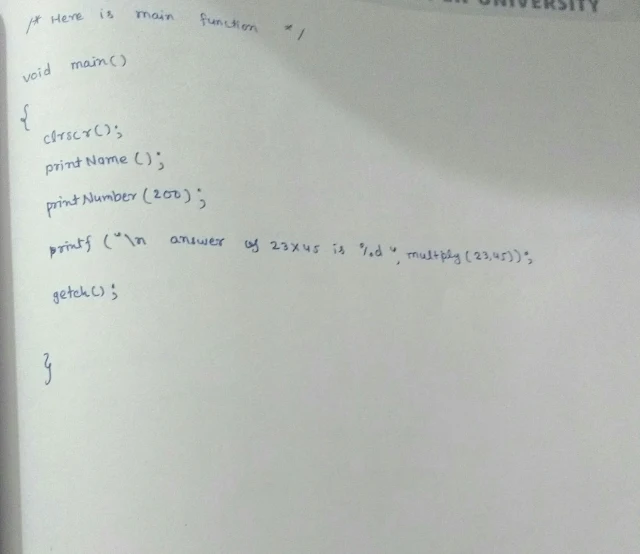 UNIVERSITY
/* Here is main function */
void main()
{
clrscr();
printName();
printNumber(200);
printf("\n answer of 23x45 is %d", multply(23,45));
getch();
}